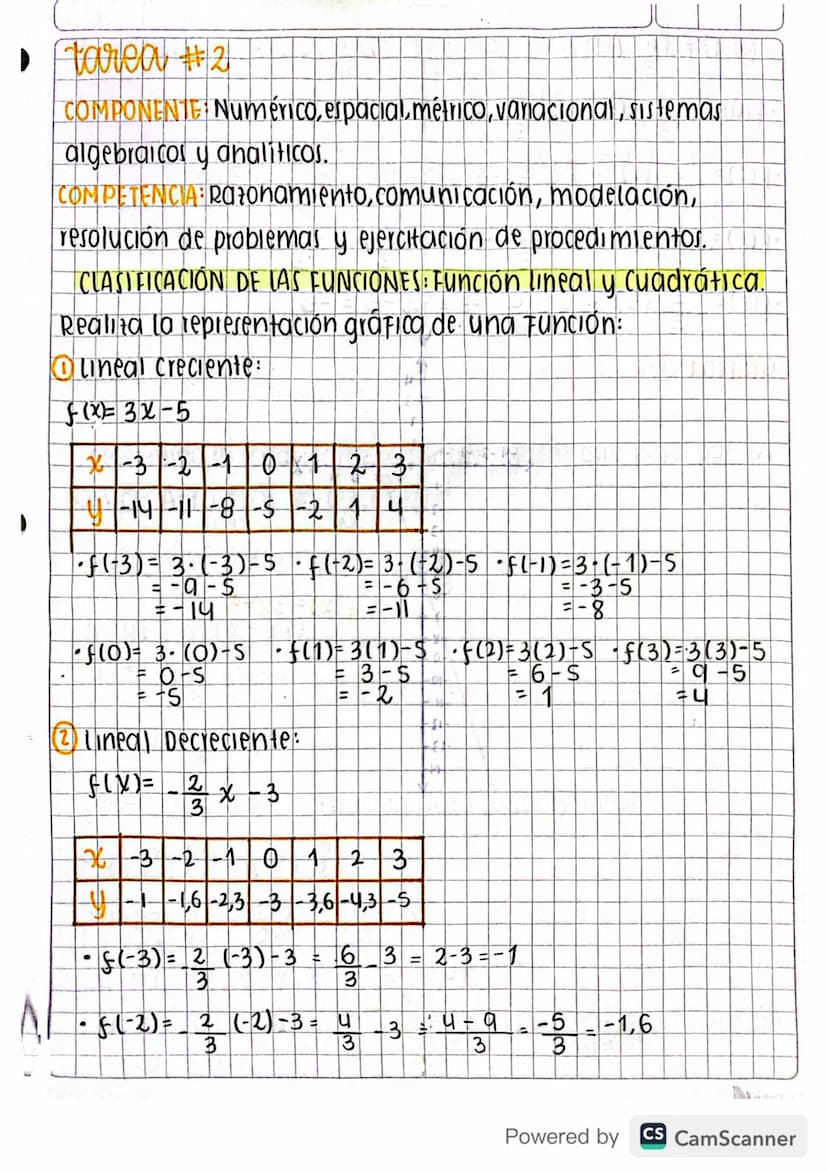 tarea #2
COMPONENTE: Numérico, espacial, métrico, variacional, sistemas
algebraicos y analíticos.
COMPETENCIA: Razonamiento, comunicación, modelación,
resolución de problemas y ejercitación de procedimientos.
CLASIFICACIÓN DE LAS FUNCIONES: Función lineal y cuadrática.
Realiza la representación gráfica de una Función:
① Lineal creciente:
f(x)= 3x-5
x -3 -2 -1 0 1 2 3
y -14 -11 -8 -5 -2 1 4
·f(-3)= 3·(-3)-5 ·f(-2)= 3·(-2)-5 ·f(-1)=3·(-1)-5
= -9-5 = -6-5 = -3-5
= -14 = -11 = -8
·f(0)= 3·(0)-5 ·f(1)= 3(1)-5 ·f(2)=3(2)-5 ·f(3)=3(3)-5
= 0-5 = 3-5 = 6-5 = 9-5
= -5 = -2 = 1 =4
② Lineal Decreciente:
f(x)= -2/3 x -3
x -3 -2 -1 0 1 2 3
y -1 -1,6 -2,3 -3 -3,6 -4,3 -5
· f(-3)= -2/3 (-3)-3 = 6/3 -3 = 2-3=-1
· f(-2)= -2/3 (-2)-3= 4/3 -3 = 4-9/3 = -5/3 = -1,6
Powered by CS CamScanner